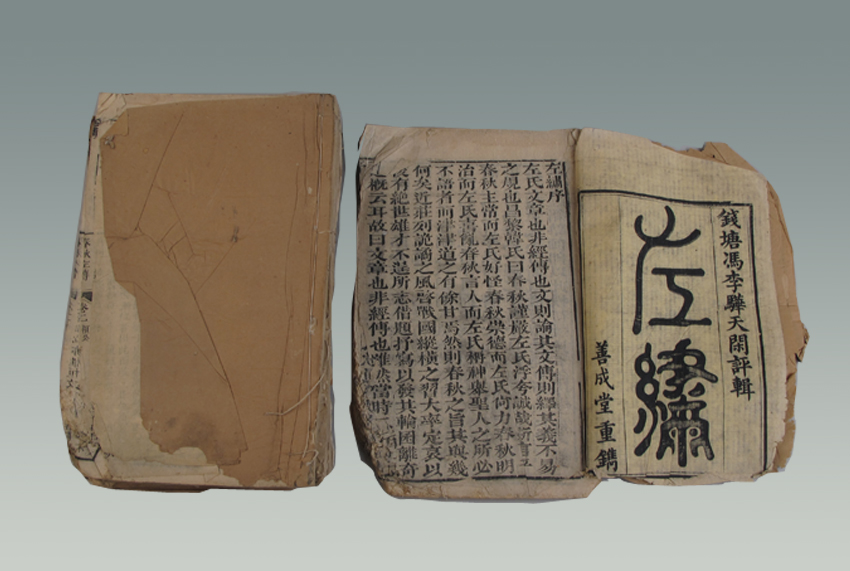 錢塘馮李驊天閑評輯
左繡
善成堂重鐫
左繡序
左氏文章也非經傳也文則論其文傳則繹其義不易
之規也昌黎韓氏曰春秋謹嚴左氏浮夸誠哉斯言
春秋主常而左氏好怪春秋崇德而左氏尚力春秋明
治而左氏喜亂春秋言人而左氏稱神舉聖人之所必
不語者而津津道之有餘甘焉然則春秋之旨其與幾
何矣近莊列詭譎之風啓戰國縱橫之習大率定哀以
後有絕世雄才不逞所志借題抒寫以發其輪囷離奇
之概云耳故曰文章也非經傳也雖然當時